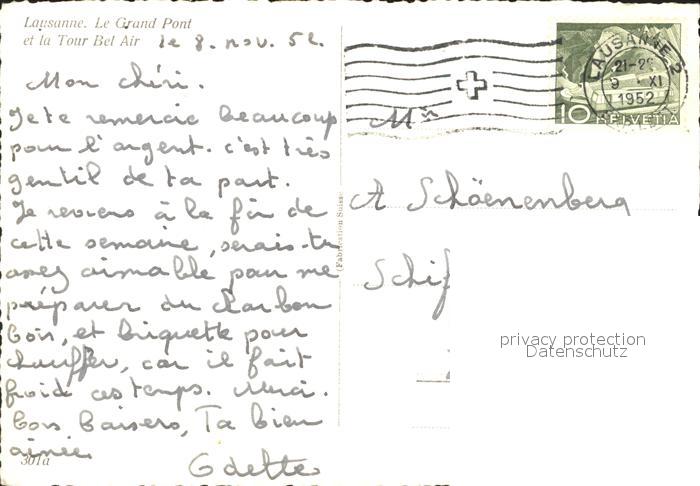 Lausanne. Le Grand Pont
et la Tour Bel Air
le 8. nov. 52.
Mon chéri.
Je te remercie beaucoup
pour l'argent. c'est très
gentil de ta part.
Je reviens à la fin de
cette semaine, serais-tu
assez aimable pour me
préparer du charbon
bois, et briquette pour
chauffer, car il fait
froid ces temps. Merci.
Bons Baisers, Ta bien
aimée.
Odette
301a
(Fabrication Suisse)
LAUSANNE 2
9 XI
1952
10 HELVETIA
A Schöenenberg
Schif
privacy protection
Datenschutz